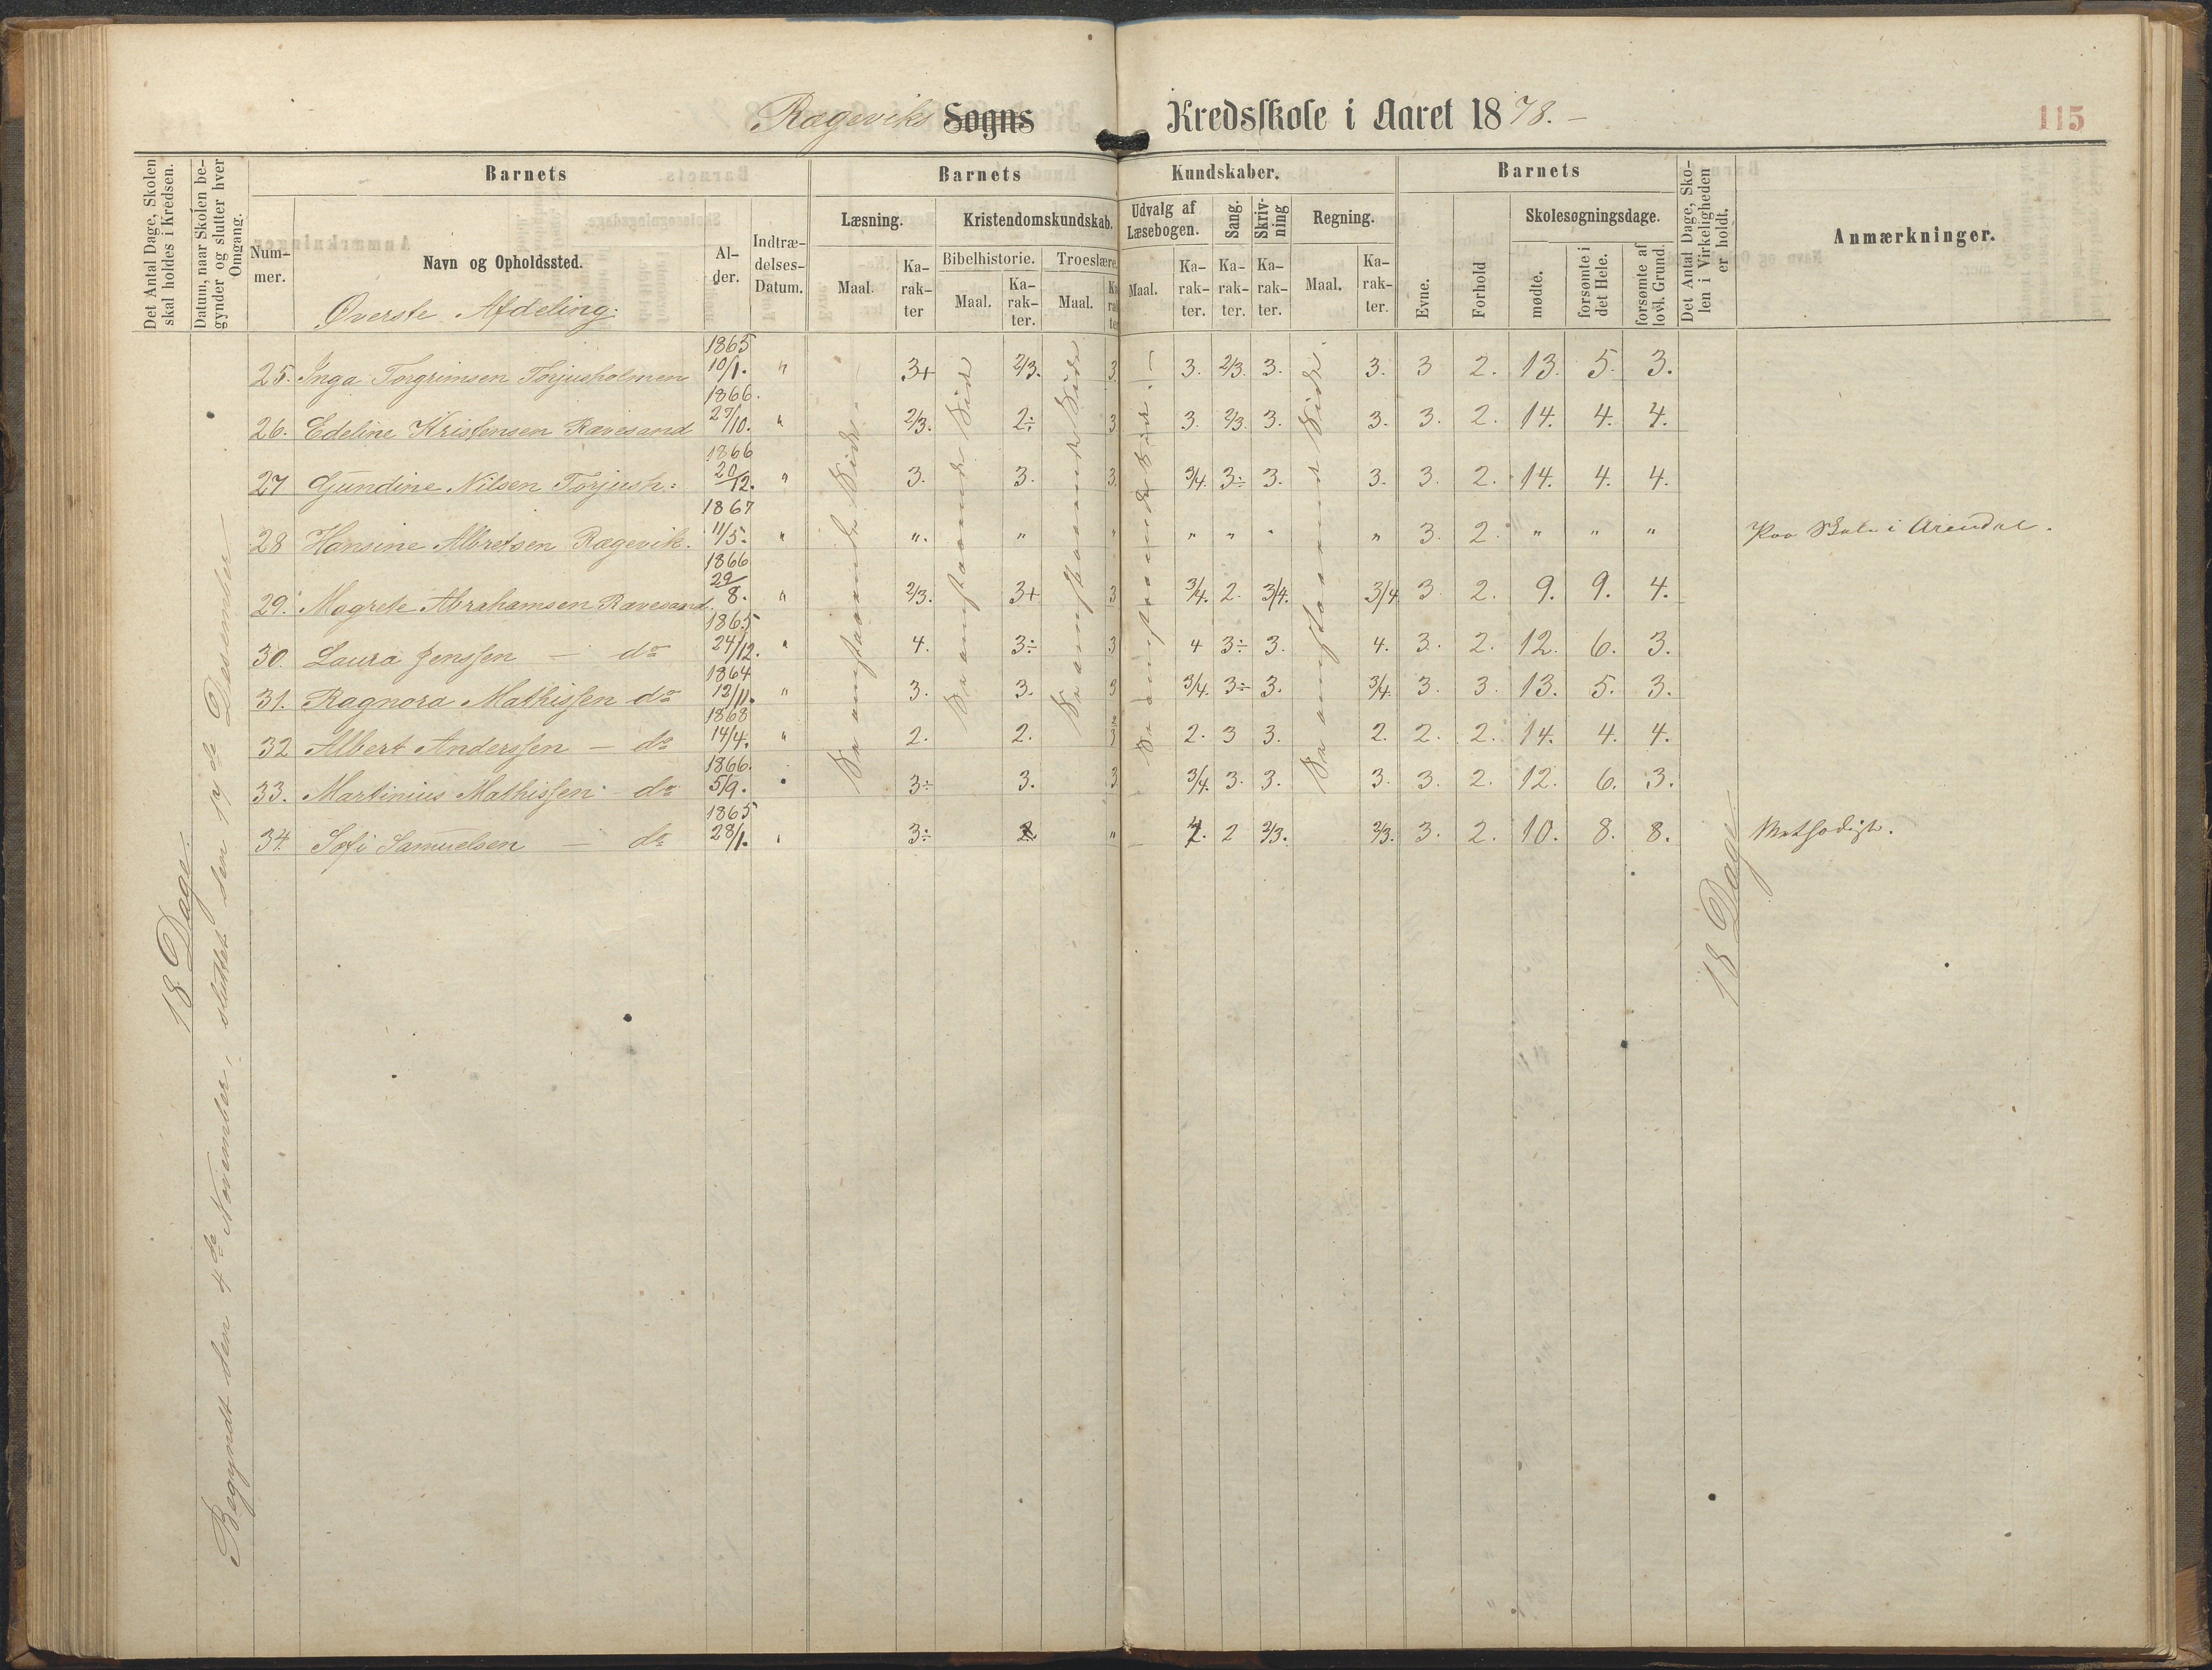 Rægeviks Sogns Kredsskole i Aaret 1878. –
115
Det Antal Dage, Skolen skal holdes i Kredsen.
Datum, naar Skolen begynder og slutter hver Omgang.
Barnets
Nummer.
Navn og Opholdssted.
Alder.
Indtrædelses-Datum.
Barnets Kundskaber.
Læsning.
Maal.
Karakter
Kristendomskundskab.
Bibelhistorie.
Maal.
Karakter.
Troeslære.
Maal.
Karakter
Udvalg af Læsebogen.
Maal.
Karakter.
Sang.
Karakter.
Skrivning
Karakter.
Regning.
Maal.
Karakter.
Barnets
Evne.
Forhold
Skolesøgningsdage.
mødte.
forsømte i det Hele.
forsømte af lovl. Grund.
Det Antal Dage, Skolen i Virkeligheden er holdt.
Anmærkninger.
Øverste Afdeling:
25. Inga Torgrimsen Torjusholmen 1865 10/1. " 3+ 2/3. 3. 3. 2/3. 3. 3. 3 2. 13. 5. 3.
26. Edeline Kristensen Ravesand 1866. 27/10. " 2/3. 2÷ 3 3. 2/3. 3. 3. 3. 2. 14. 4. 4.
27 Gundine Nilsen Torjush: 1866 20/12. " 3. 3. 3. 3/4. 3÷ 3. 3. 3. 2. 14. 4. 4.
28 Hansine Albretsen Rægevik. 1867 11/5. " ". " " " " " " 3. 2. " " " Paa Skole i Arendal.
29. Magrete Abrahamsen Ravesand. 1866 29/8. " 2/3. 3+ 3 3/4. 2. 3/4. 3/4 3 2. 9. 9. 4.
30. Laura Jenssen – do 1865 24/12. " 4. 3÷ 3 4 3÷ 3. 4. 3. 2. 12. 6. 3.
31. Ragnora Mathissen do 1864 12/11. " 3. 3. 3 3/4. 3÷ 3. 3/4. 3. 3. 13. 5. 3.
32 Albert Anderssen – do 1868 14/4. " 2. 2. 2/3 2. 3 3. 2. 2. 2. 14. 4. 4.
33. Martinius Mathissen – do 1866. 5/9. " 3÷ 3. 3 3/4. 3. 3. 3. 3. 2. 12. 6. 3.
34. Sofi Samuelsen – do 1865 28/1. " 3÷ " 2 2/3. 2/3. 3. 2. 10. 8. 8. Methodist.
18 Dage.
Begyndt den 4de November, sluttet den 17de Desember
Se omstaaende Side.
Se omstaaende Side
Se omstaaende Side
Se omstaaende Side. –
Se omstaaende Side.
18 Dage.